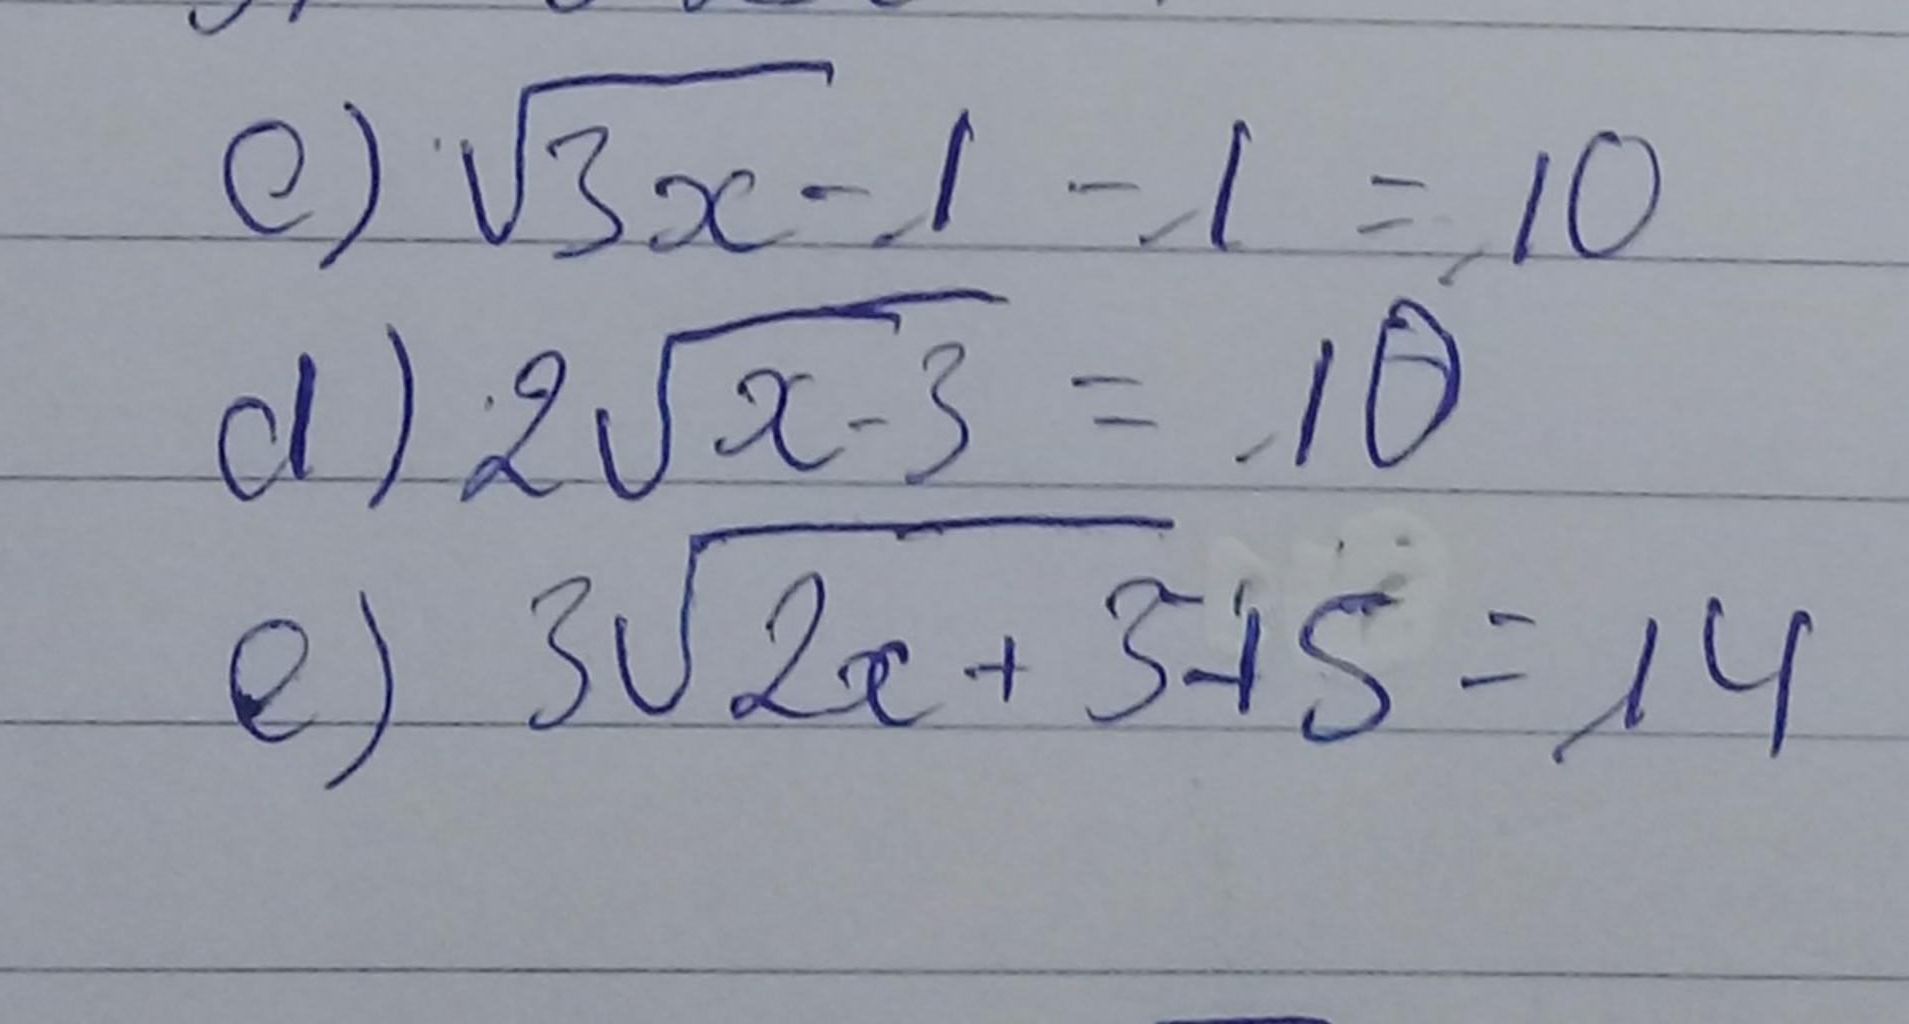 c) √3x - 1 - 1 = 10
d) 2√x-3 = 10
e) 3√2x + 3 + 5 = 14